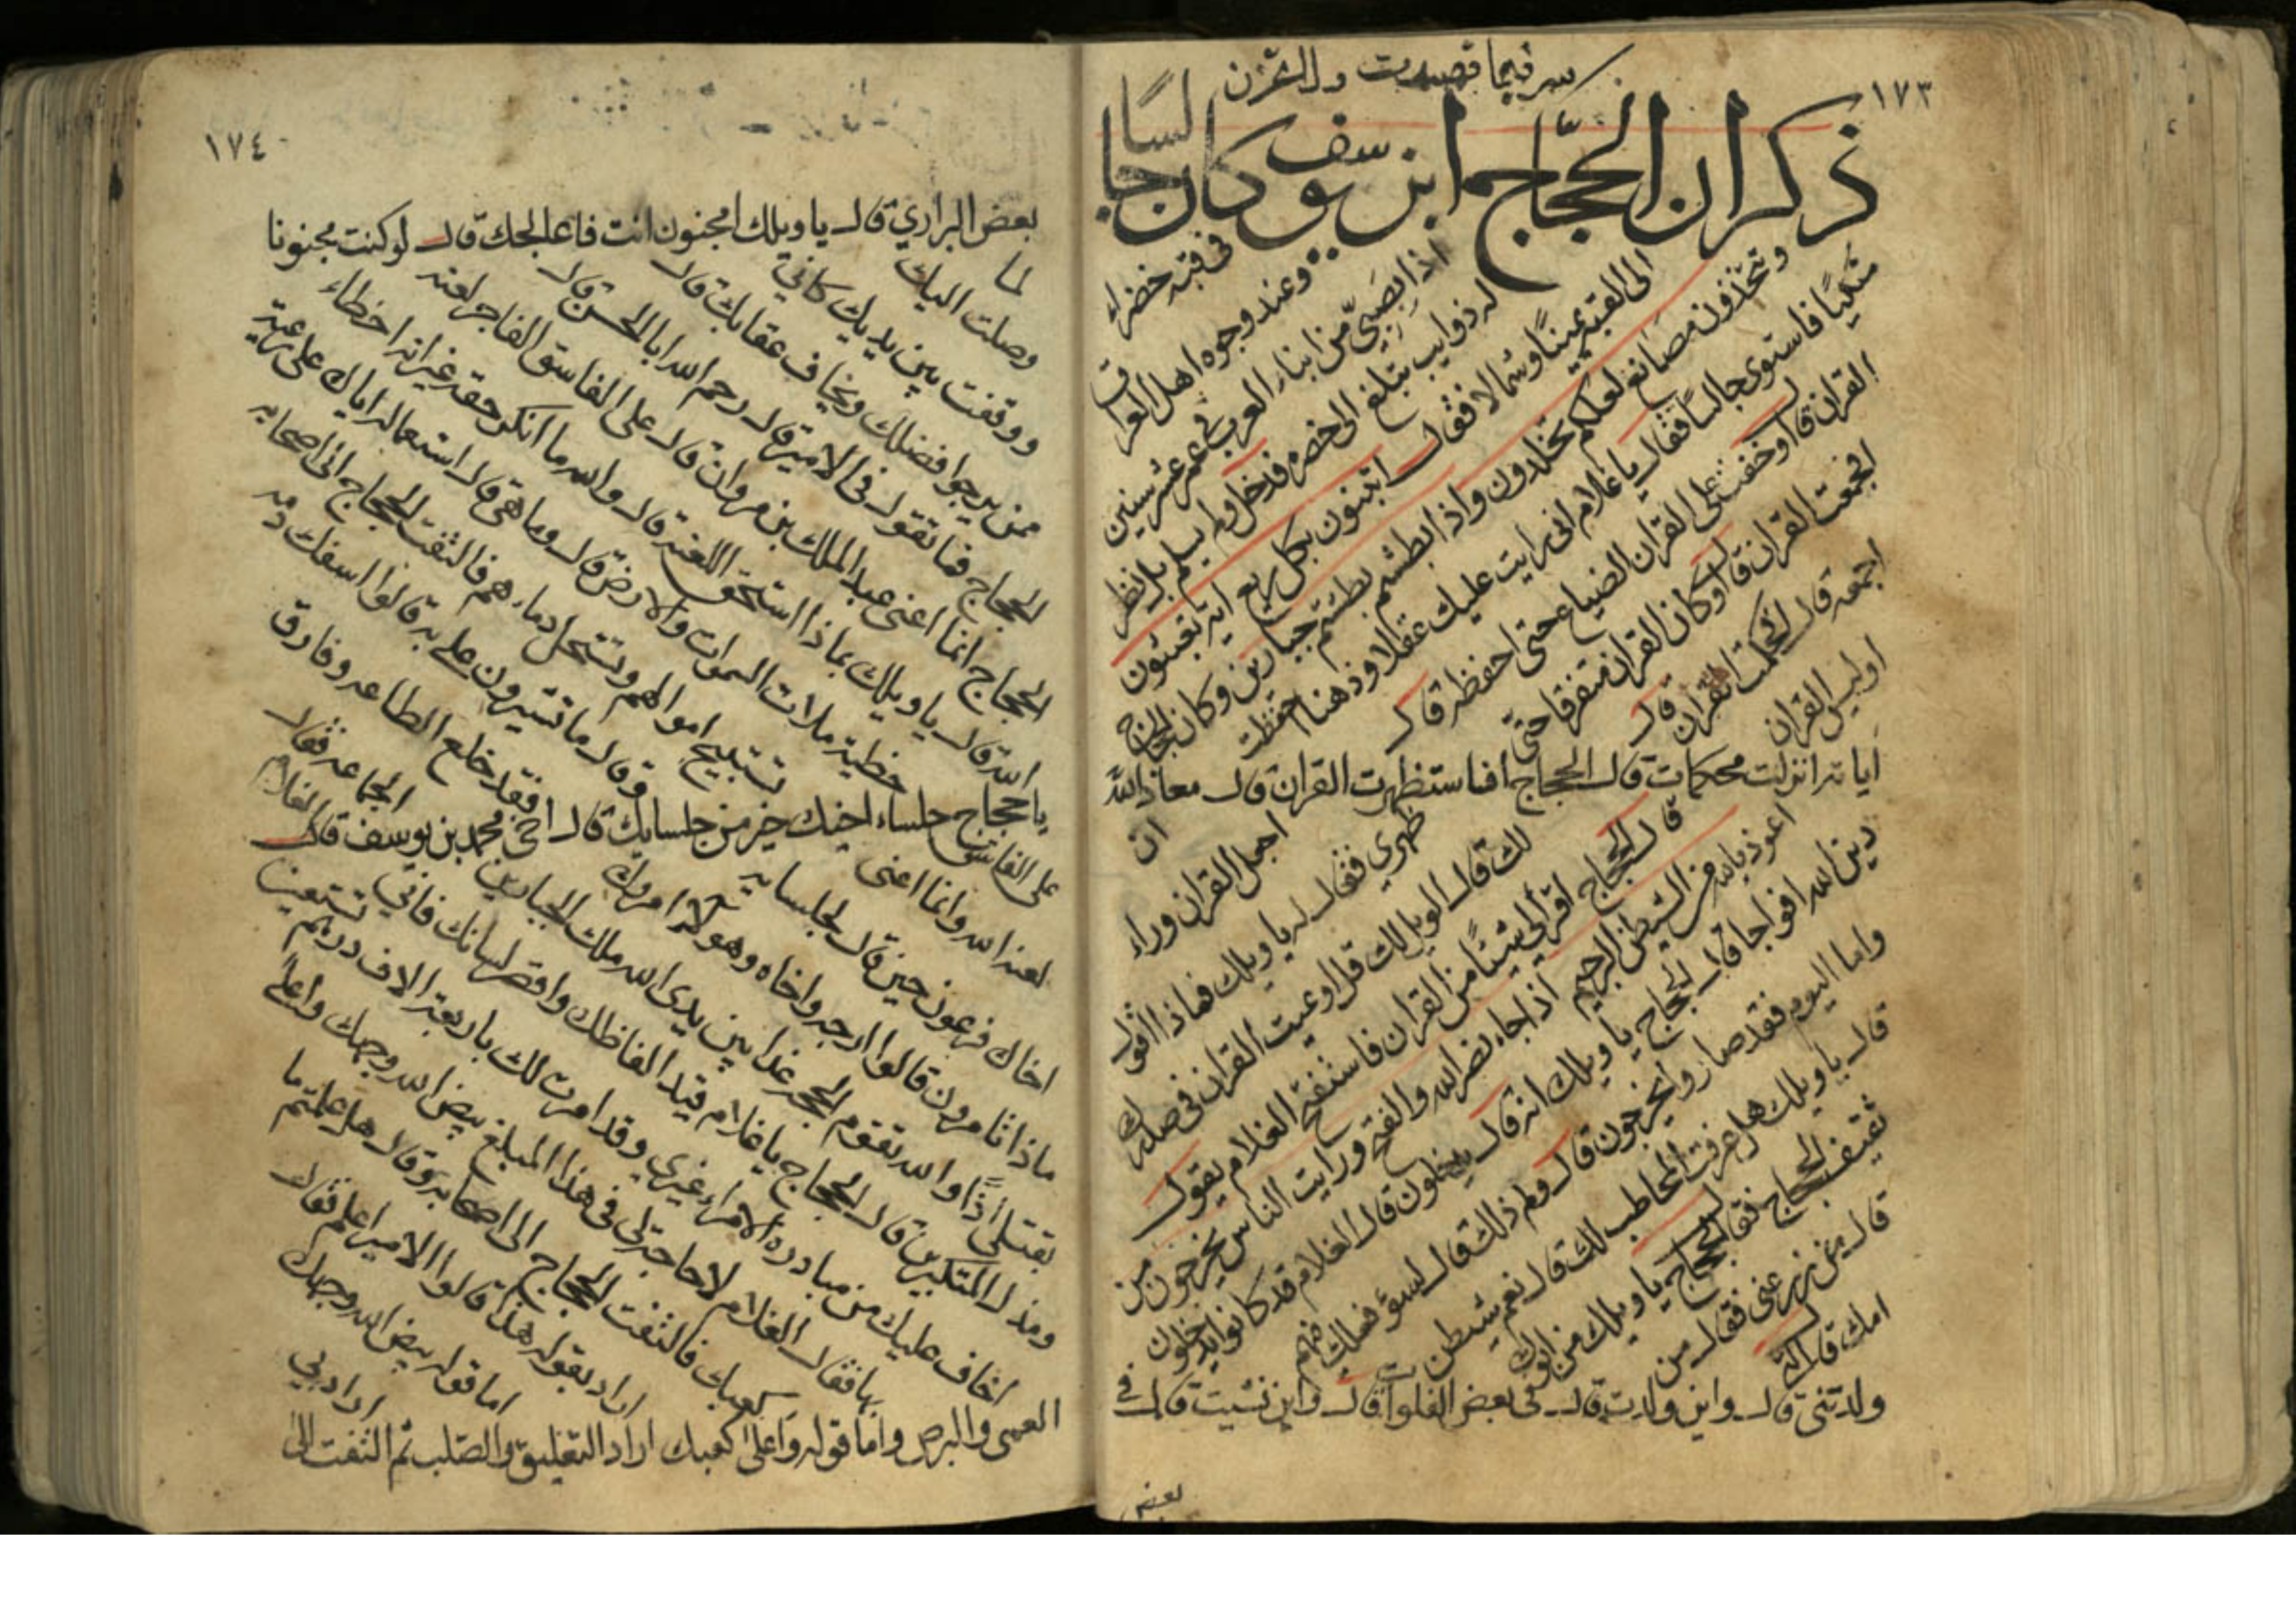 ١٧٣
سر فيما قصدت ولا تحزن
ذكر ان الحجاج ابن يوسف كان جالسا
في قبة خضراء
وعنده وجوه اهل العراق
اذا بصبي من ابناء العرب في عمر عشر سنين
له ذوايب تبلغ الى خصره فدخل ولم يسلم بل نظر
الى القبة يمينا وشمالا فقال اتبنون بكل ريع اية تعبثون
وتتخذون مصانع لعلكم تخلدون واذا بطشتم بطشتم جبارين وكان الحجاج
متكيا فاستوى جالسا فقال يا غلام انى رايت عليك عقلا وذهنا احفظت
القران قال اوخفت على القران الضياع حتى احفظه قال
افجمعت القران قال اوكان القران متفرقا حتى
اجمعه قال افحكمت القران قال
اوليس القران
اياته انزلت محكمات قال الحجاج افاستظهرت القران قال معاذ الله
ان
اجعل القران وراء
ظهري فقال له يا ويلك فماذا اقول
لك قال الويل لك قل اوعيت القران في صدرك
قال الحجاج اقرأ لي شيئا من القران فاستفتح الغلام يقول
اعوذ بالله من الشيطن الرجيم اذا جاء نصر الله والفتح ورايت الناس يخرجون من
دين الله افواجا قال الحجاج يا ويلك انه قال يدخلون قال الغلام قد كانوا يدخلون
واما اليوم فقد صاروا يخرجون قال ولم ذلك قال لسؤ فعلك بهم
قال يا ويلك هل عرفت المخاطب لك قال نعم شيطن
ثقيف الحجاج فقال الحجاج يا ويلك من ابوك
قال من زرعنى فقال من
امك قال التى
ولدتنى قال واين ولدت قال في بعض الفلوات قال واين نشيت قال في
بعض
١٧٤
بعض البراري قال يا ويلك امجنون انت فاعالجك قال لو كنت مجنونا
لما
وصلت اليك
ووقفت بين يديك كاني
ممن يرجوا فضلك ويخاف عقابك قال
الحجاج فما تقول في الامير قال رحم الله ابا الحسن قال
الحجاج انما اعنى عبد الملك بن مروان قال على الفاسق الفاجر لعنة
الله قال يا ويلك بماذا استحق اللعنة قال والله ما انكر حقه غير انه اخطاء
خطية ملات السموات والارض قال وما هي قال استعماله اياك على رعيته
تستبيح اموالهم وتستحل دماءهم فالتفت الحجاج الى اصحابه
وقال ما تشيرون علي به قالوا اسفك دمه
فقد خلع الطاعه وفارق
الجماعه فقال الغلام
يا حجاج جلساء اخيك خير من جلسايك قال اخي محمد بن يوسف قال
على الفاسق
لعنة الله وانما اعنى
اخاك فرعون حين قال لجلسايه
ماذا تامرون قالوا ارجه واخاه وهولاء امروك
بقتلى اذا والله تقوم الحجة غدا بين يدى الله ملك الجبارين
ومذل المتكبرين قال الحجاج يا غلام قيد الفاظك واقصر لسانك فاني
اخاف عليك من مبادره الامراء غيري وقد امرت لك باربعة الاف درهم تستعين
بها فقال الغلام لا حاجة لي في هذا المبلغ بيض الله وجهك واعلا
كعبك فالتفت الحجاج الى اصحابه وقال هل علمتم ما
اراد بقوله هذا قالوا الامير اعلم فقال
اما قوله بيض الله وجهك
اراد بي
العمى والبرص واما قوله واعلى كعبك اراد التعليق والصلب ثم التفت الى